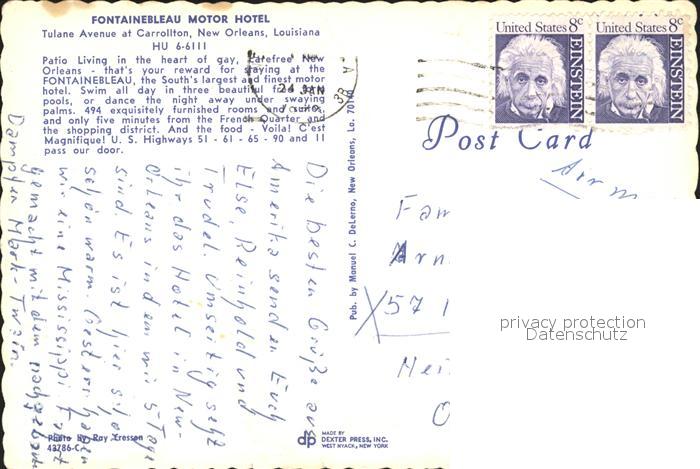 FONTAINEBLEAU MOTOR HOTEL
Tulane Avenue at Carrollton, New Orleans, Louisiana
HU 6-6111
Patio Living in the heart of gay, carefree New
Orleans - that's your reward for staying at the
FONTAINEBLEAU, the South's largest and finest motor
hotel. Swim all day in three beautiful
pools, or dance the night away under swaying
palms. 494 exquisitely furnished rooms and suites,
and only five minutes from the French Quarter and
the shopping district. And the food - Voila! C'est
Magnifique! U. S. Highways 51 - 61 - 65 - 90 and 11
pass our door.
24 JAN
United States 8c
EINSTEIN
United States 8c
EINSTEIN
Post Card
Die besten Grüße aus
Amerika senden Euch
Else, Reinhold und
Trudel. Umseitig seht
ihr das Hotel in New-
Orleans in dem wir 5 Tage
sind. Es ist hier schon
schön warm. Gestern haben
wir eine Mississippi Fahrt
gemacht mit dem
Dampfer Mark-Twain.
Pub. by Manuel C. DeLerno, New Orleans, La. 70160
Fam
Arn
57
Hei
privacy protection
Datenschutz
Photo by Ray Cresson
43786-C
dp
MADE BY
DEXTER PRESS, INC.
WEST NYACK, NEW YORK